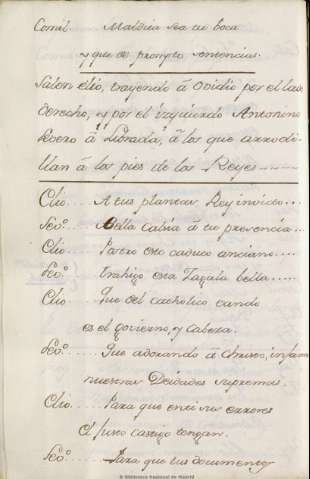 Cornil. Maldita sea tu boca
y que de prompto sentencias.
Salen Clio, trayendo â Ovidio por el lado
derecho, y por el izquierdo Antonino
Severo â Librada, â los que arrodi-
llan â los pies de los Reyes
Clio... A tus plantas Rey invicto...
Seoº... Bella Calsia â tu presencia...
Clio... Postro este caduco anciano...
Seoº... trahigo esta bella...
Clio... Que del catholico vando
es el govierno, y Cabeza.
Seoº... Que adorando â Christo, infama
nuestras Deidades supremas.
Clio... Para que entre sus errores
el justo castigo tengan.
Seoº... Para que tus documentos
© Biblioteca Nacional de España